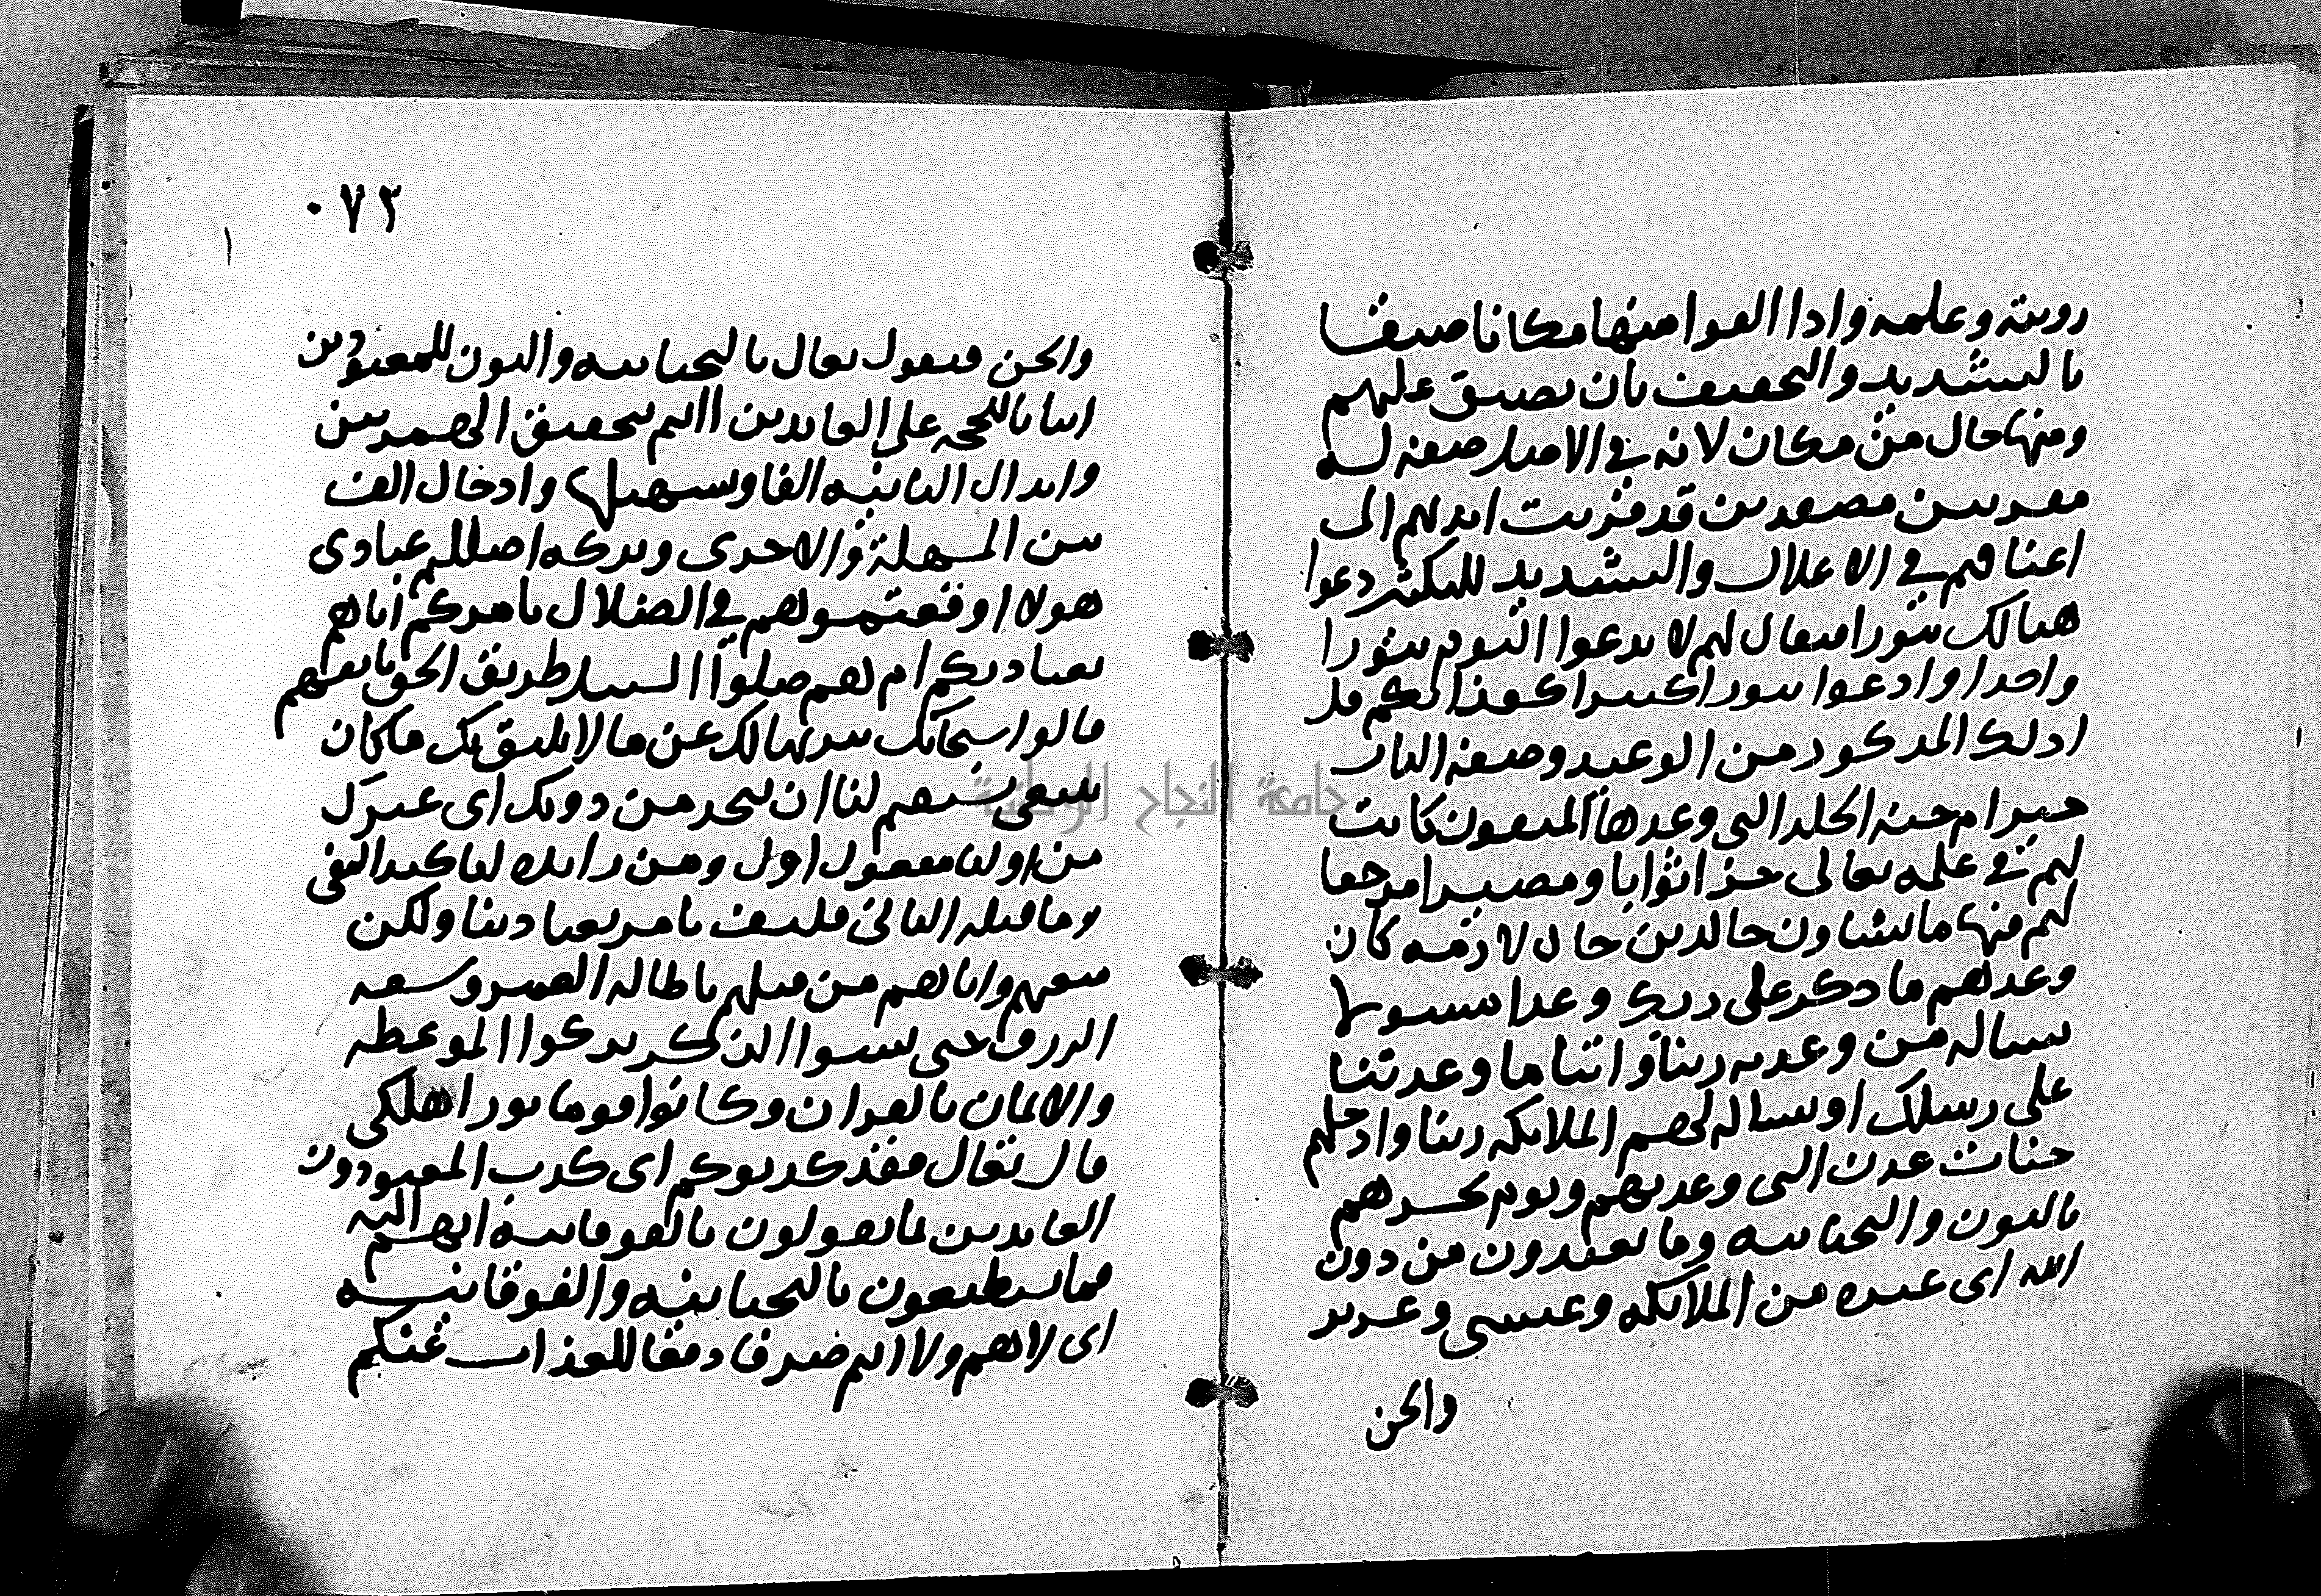 رويته وعلمه واذا القوا منها مكانا ضيقا
بالتشديد والتخفيف بان يضيق عليهم
ومنها حال من مكان لانه في الاصل صفة له
مقرنين مصفدين قد قرنت ايديهم الى
اعناقهم في الاغلال والتشديد للتكثير دعوا
هنالك ثبورا فيقال لهم لا تدعوا اليوم ثبورا
واحدا وادعوا ثبورا كثيرا كعذابكم قل
اذلك المذكور من الوعيد وصفة النار
خير ام جنة الخلد التي وعدها المتقون كانت
لهم في علمه تعالى جزا ثوابا ومصيرا مرجعا
لهم فيها ما يشاون خالدين حال لازمه كان
وعدهم ما ذكر على ربك وعدا مسئولا
يساله من وعد به ربنا واتنا ما وعدتنا
على رسلك او يساله لهم الملائكه ربنا وادخلهم
جنات عدن التي وعدتهم ويوم نحشرهم
بالنون والتحتانيه وما يعبدون من دون
الله اى غيره من الملائكه وعيسى وعزير
والجن
٠٧٢
والجن فيقول تعالى بالتحتانيه والنون للمعبودين
اثباتا للحجه على العابدين اانتم بتحقيق الهمزتين
وابدال الثانيه الفا وتسهيلها وادخال الف
بين المسهلة والاخرى وتركه اضللتم عبادى
هولا اوقعتموهم في الضلال بامركم اياهم
بعبادتكم ام هم ضلوا السبيل طريق الحق بانفسهم
قالوا سبحانك تنزيها لك عن ما لا يليق بك ما كان
ينبغى يستقيم لنا ان نتخذ من دونك اى غيرك
من اوليا مفعول اول ومن زايده لتاكيد النفى
وما قبله الثاني فكيف نامر بعبادتنا ولكن
متعتهم واباهم من قبلهم باطالة العمر وسعه
الرزق حتى نسوا الذكر تركوا الموعظه
والايمان بالقران وكانوا قوما بورا هلكى
قال تعالى فقد كذبوكم اى كذب المعبودون
العابدين بما تقولون بالفوقانيه انهم الهه
فما يستطيعون بالتحتانيه والفوقانيه
اى لا هم ولا انتم صرفا دفعا للعذاب عنكم
جامعة النجاح الوطنية